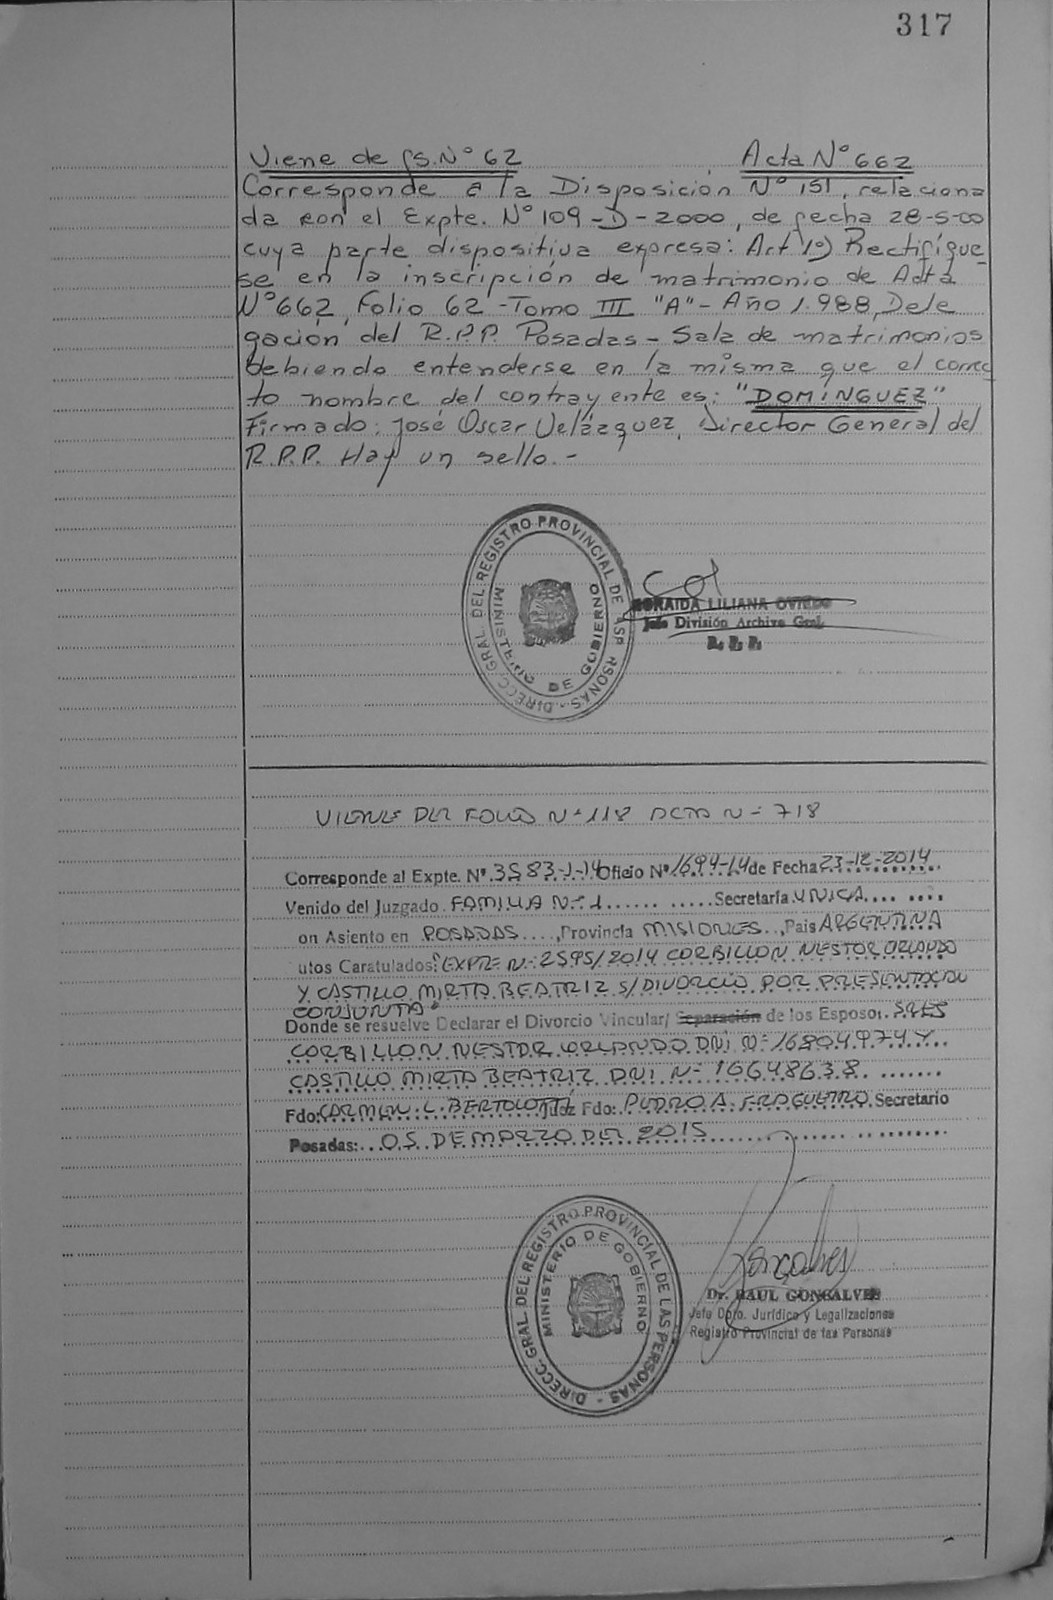 317
Viene de fs. Nº 62 Acta Nº 662
Corresponde a la Disposición Nº 151, relaciona
da con el Expte. Nº 109-D-2000, de fecha 28-5-00
cuya parte dispositiva expresa: Art 1º) Rectifíque
se en la inscripción de matrimonio de Acta
Nº 662, Folio 62 - Tomo III "A" - Año 1.988, Dele
gación del R.P.P. Posadas - Sala de matrimonios
debiendo entenderse en la misma que el correc
to nombre del contrayente es: "DOMINGUEZ"
Firmado: José Oscar Velázquez, Director General del
R.P.P. Hay un sello.-
DIRECC. GRAL. DEL REGISTRO PROVINCIAL DE LAS PERSONAS -
MINISTERIO DE GOBIERNO
LILIANA OVIEDO
Jefe División Archivo Gral.
R. P. P.
VIENE DEL FOLIO Nº 118 ACTA Nº 718
Corresponde al Expte. Nº 3583-J-14 Oficio Nº 1694-14 de Fecha 23-12-2014
Venido del Juzgado FAMILIA Nº 1 Secretaría UNICA
on Asiento en POSADAS, Provincia MISIONES, Pais ARGENTINA
utos Caratulados: "EXPTE Nº 2595/2014 CORBILLON NESTOR ORLANDO
Y CASTILLO MIRTA BEATRIZ S/ DIVORCIO POR PRESENTACION
CONJUNTA"
Donde se resuelve Declarar el Divorcio Vincular/ Separación de los Esposos SRES
CORBILLON NESTOR ORLANDO DNI Nº 16804974 Y
CASTILLO MIRTA BEATRIZ DNI Nº 16648638
Fdo: CARMEN L. BERTOLOTTI Juez Fdo: PEDRO A. FRAGUEIRO Secretario
Posadas: 05 DE MARZO DEL 2015
DIRECC. GRAL. DEL REGISTRO PROVINCIAL DE LAS PERSONAS -
MINISTERIO DE GOBIERNO
Gonçalves
Dr. RAUL GONSALVES
Jefe Dpto. Jurídico y Legalizaciones
Registro Provincial de las Personas